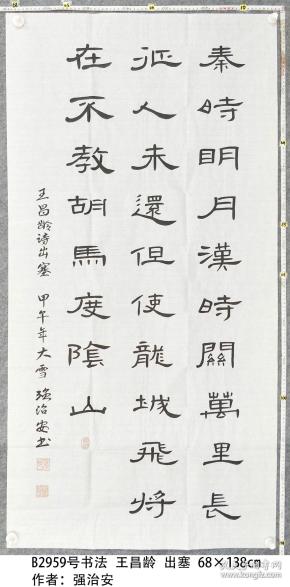 秦時眀月漢時關萬里長
征人未還但使龍城飛將
在不教胡馬度陰山
王昌龄诗出塞 甲午年大雪 强治安书
B2959号书法 王昌龄 出塞 68×138cm
作者：强治安